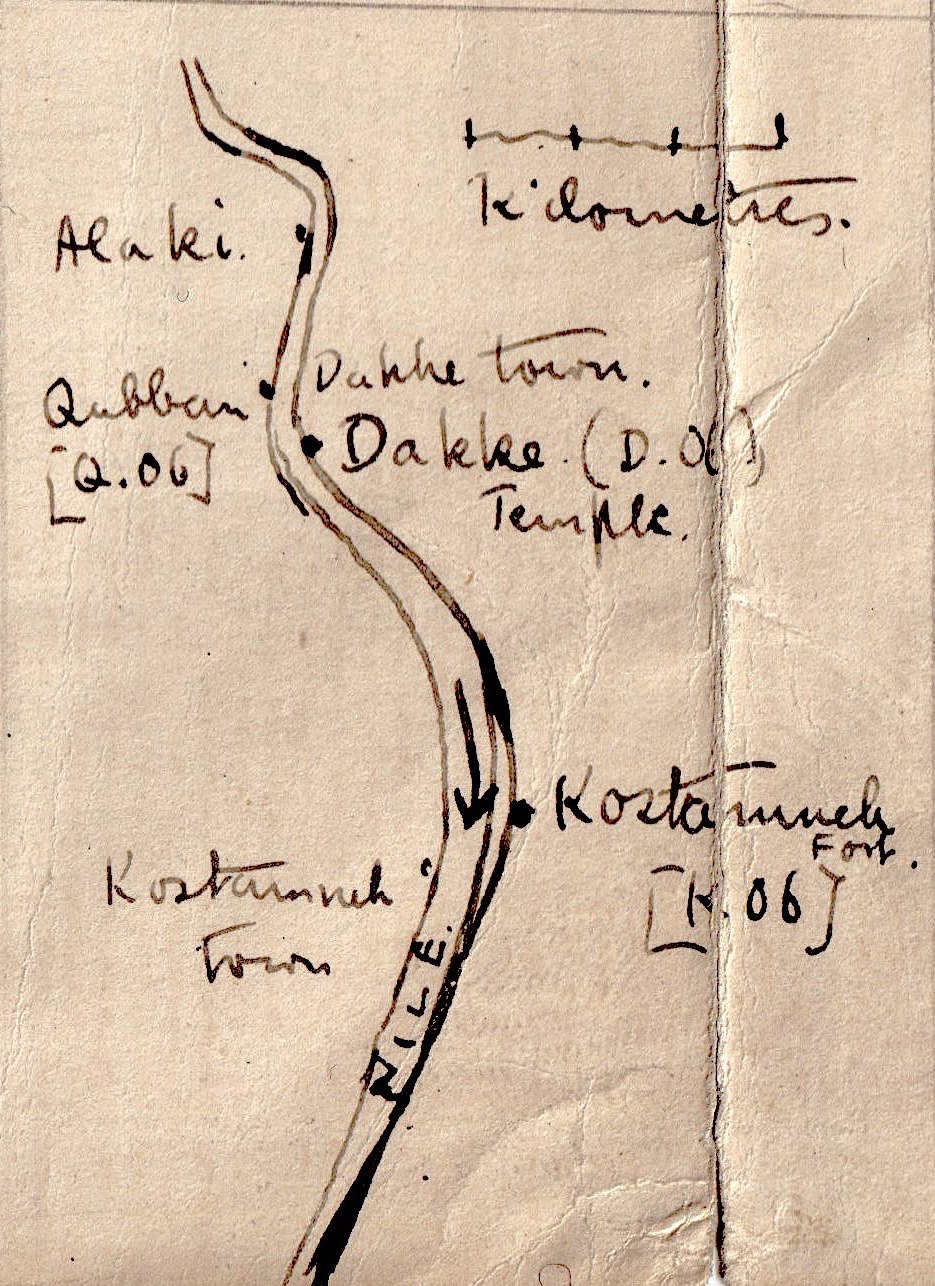 Kilometres.
Alaki.
Dakke town.
Qubban
[Q.06]
Dakke. (D.06)
Temple.
Kostamneh
Fort.
[K.06]
Kostamneh
town
NILE.